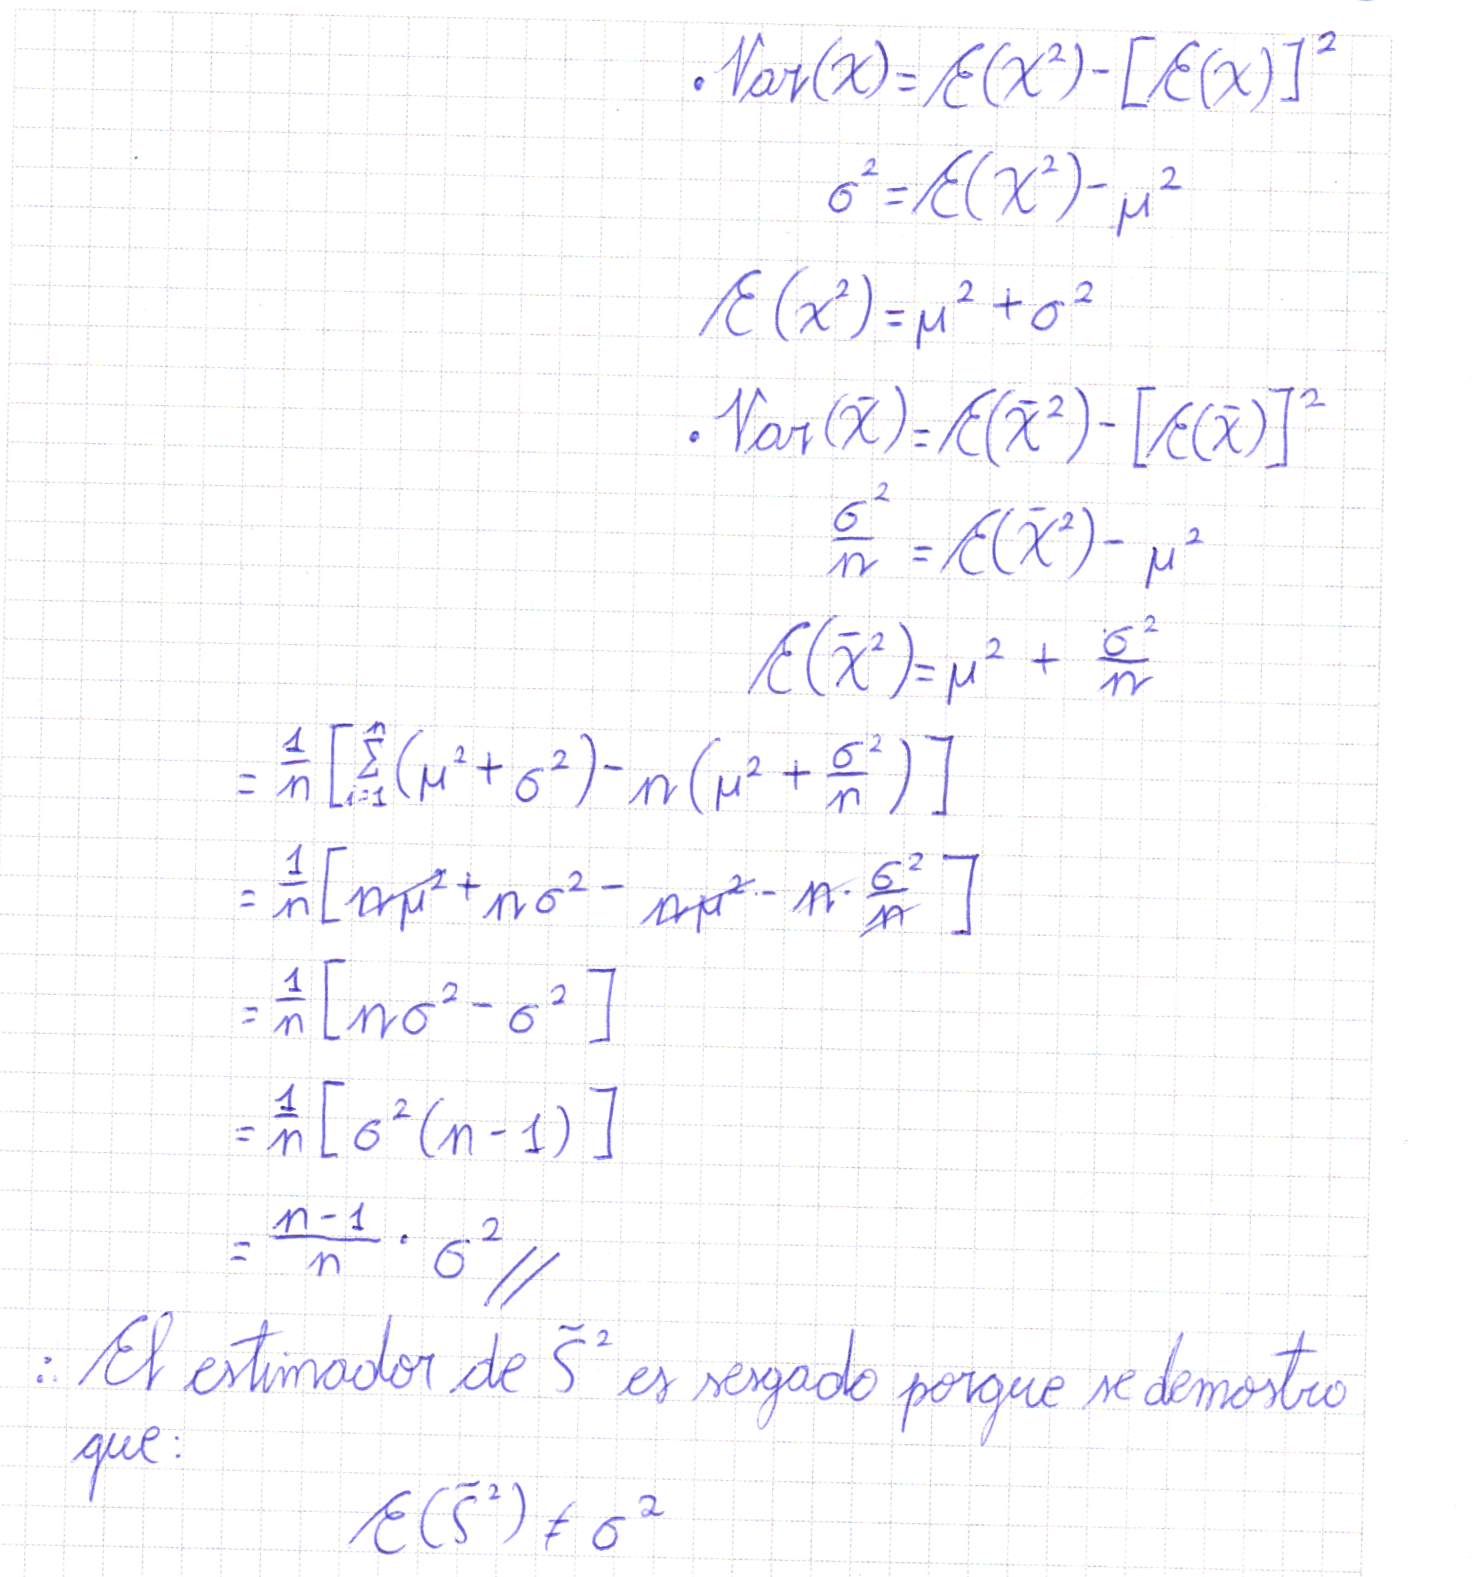 . Var(X) = E(X²) - [E(X)]²
σ² = E(X²) - μ²
E(x²) = μ² + σ²
. Var(x̄) = E(x̄²) - [E(x̄)]²
σ²/n = E(x̄²) - μ²
E(x̄²) = μ² + σ²/n
= 1/n [ Σⁿᵢ₌₁ (μ² + σ²) - n(μ² + σ²/n) ]
= 1/n [ nμ² + nσ² - nμ² - n · σ²/n ]
= 1/n [ nσ² - σ² ]
= 1/n [ σ²(n - 1) ]
= n-1/n · σ² //
∴ El estimador de S̃² es sesgado porque se demostro
que:
E(S̃²) ≠ σ²